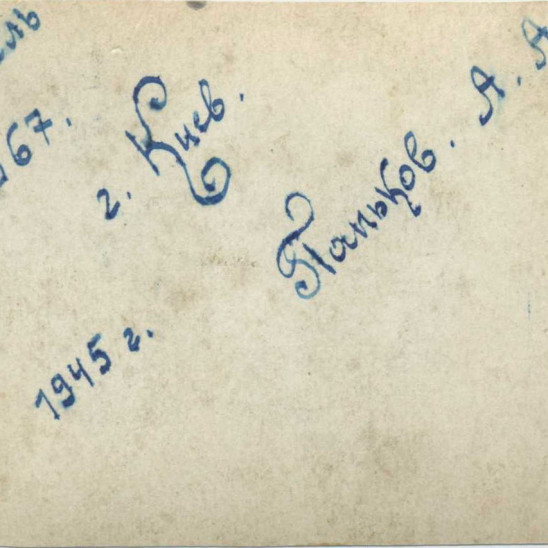 67.
г. Киев.
Паньков. А. А
1945 г.